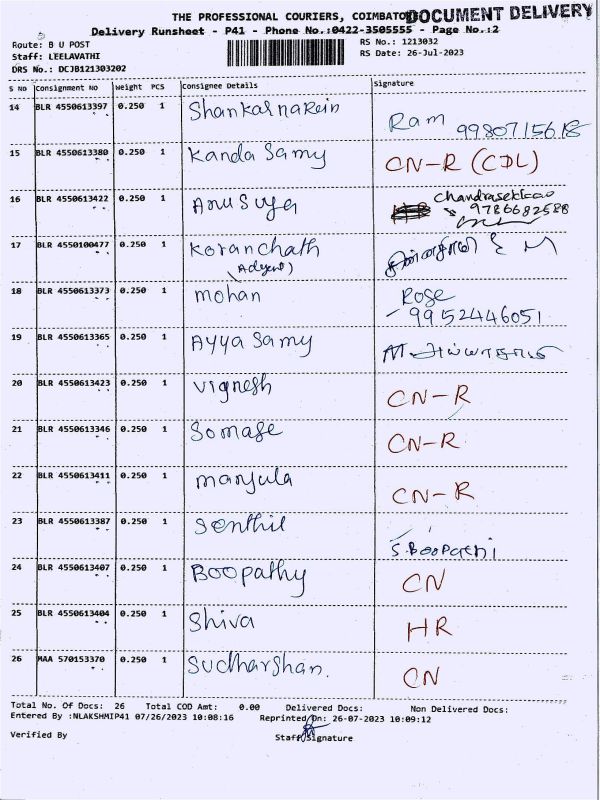 THE PROFESSIONAL COURIERS, COIMBATO
DOCUMENT DELIVERY
Delivery Runsheet - P41 - Phone No.:0422-3505555 - Page No.:2
Route: B U POST
RS No.: 1213032
Staff: LEELAVATHI
RS Date: 26-Jul-2023
DRS No.: DCJB121303202
S No Consignment No Weight PCS Consignee Details Signature
14 BLR 4550613397 0.250 1 Shankarnarein Ram 9980715618
15 BLR 4550613380 0.250 1 Kanda Samy CN-R (CDL)
16 BLR 4550613422 0.250 1 Anusuya Chandrasekkao
9786682588
17 BLR 4550100477 0.250 1 Koranchath
18 BLR 4550613373 0.250 1 mohan Rose
9952446051
19 BLR 4550613365 0.250 1 Ayya Samy
20 BLR 4550613423 0.250 1 vignesh CN-R
21 BLR 4550613346 0.250 1 Somase CN-R
22 BLR 4550613411 0.250 1 manjula CN-R
23 BLR 4550613387 0.250 1 Senthil S.Boopathi
24 BLR 4550613407 0.250 1 Boopathy CN
25 BLR 4550613404 0.250 1 Shiva HR
26 MAA 570153370 0.250 1 Sudharshan. CN
Total No. Of Docs: 26 Total COD Amt: 0.00 Delivered Docs: Non Delivered Docs:
Entered By :NLAKSHMIP41 07/26/2023 10:08:16 Reprinted On: 26-07-2023 10:09:12
Verified By Staff Signature